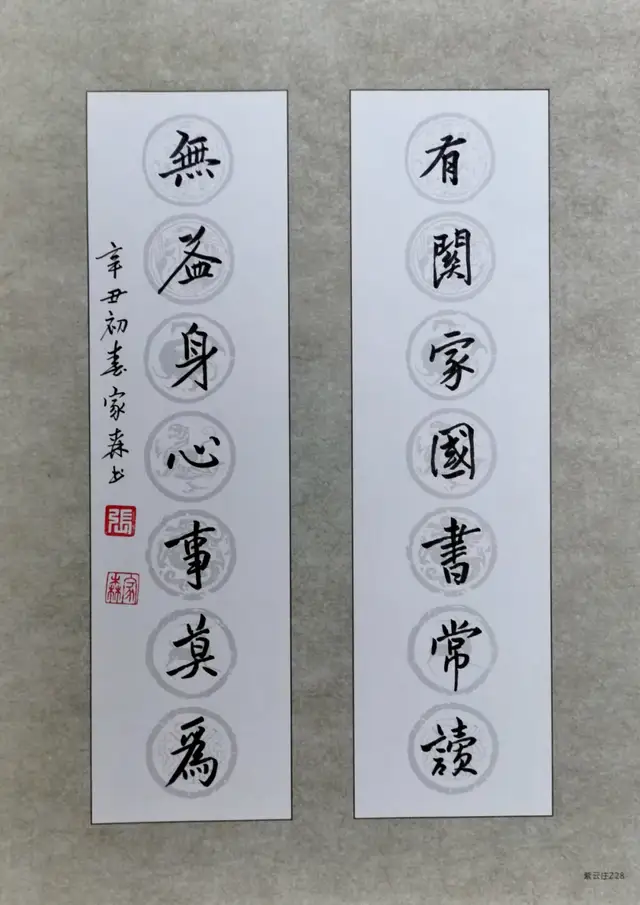 有關家國書常讀
無益身心事莫為
辛丑初春家森书
張
家森
紫云庄228